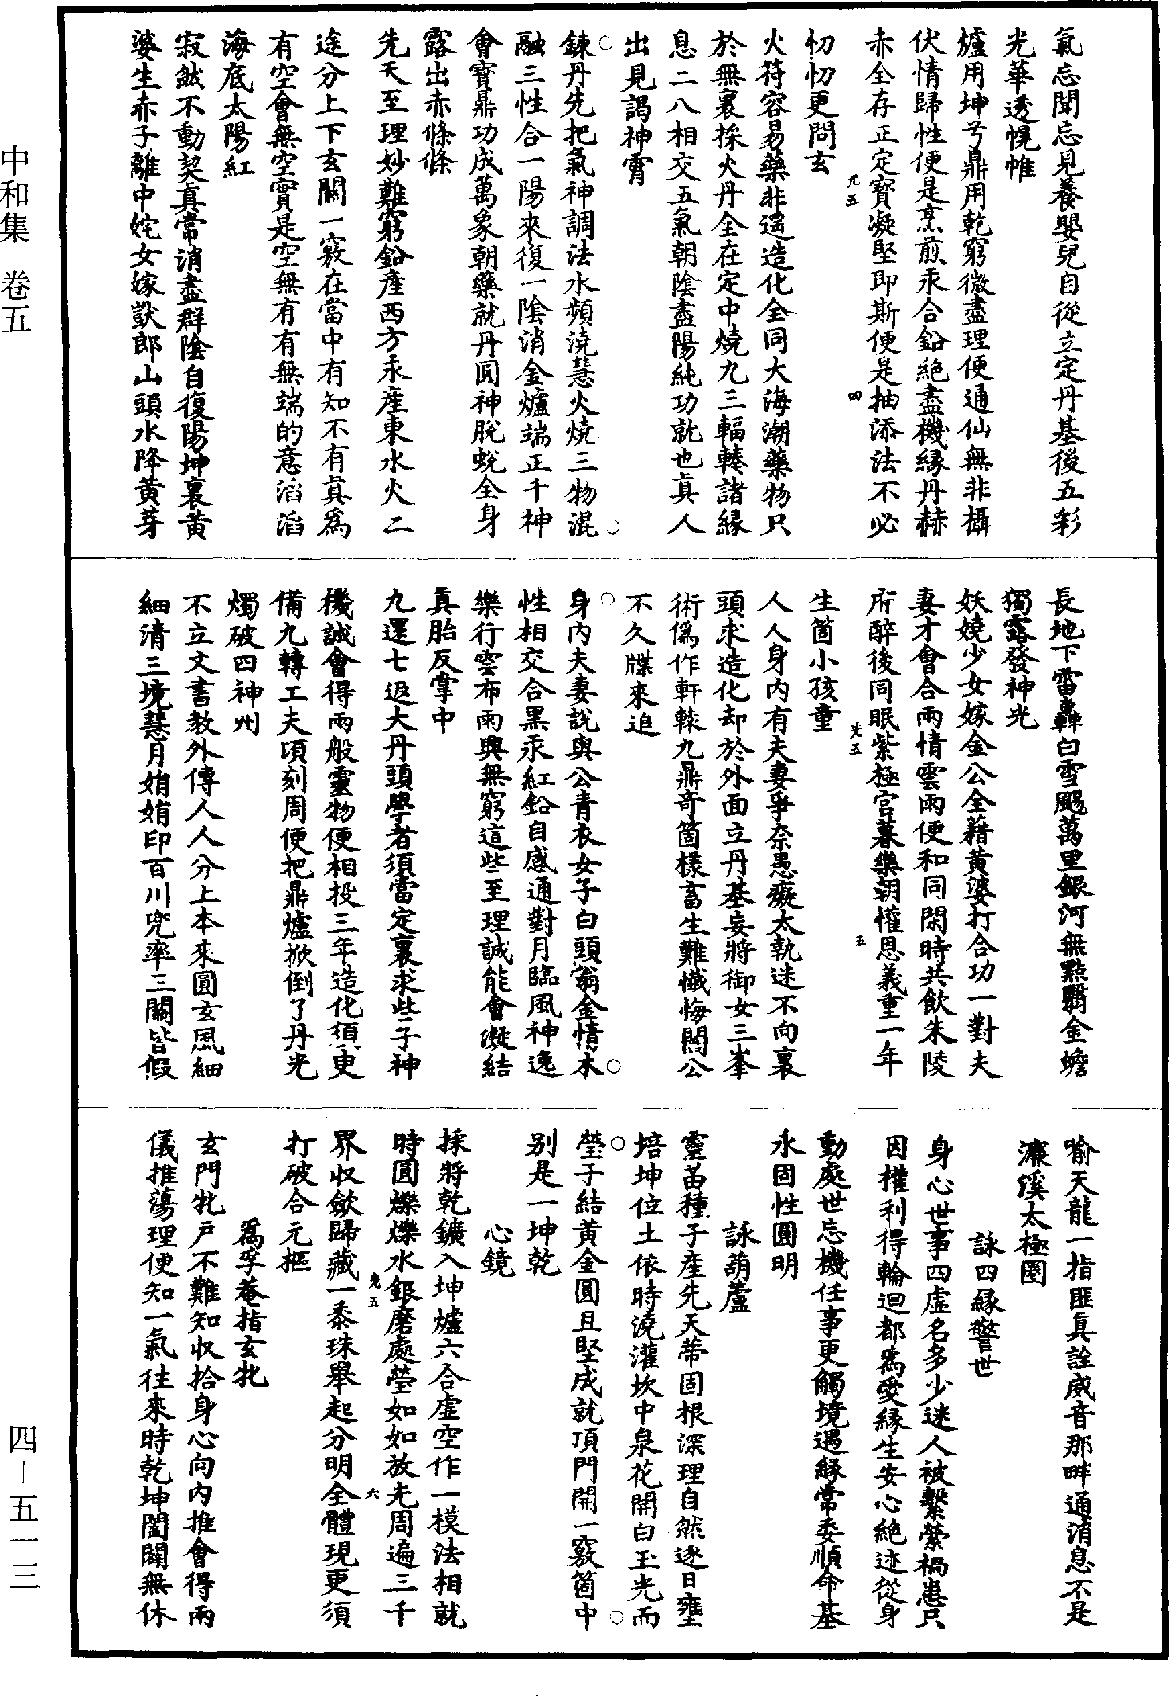 中和集 卷五
氣忘聞忘見養嬰兒自從立定丹基後五彩
光華透幌帷
爐用坤兮鼎用乾窮微盡理便通仙無非攝
伏情歸性便是烹煎汞合鉛絶盡機緣丹赫
赤全存正定寶凝堅即斯便是抽添法不必
忉忉更問玄
火符容易藥非遥造化全同大海潮藥物只
於無裏採火丹全在定中燒九三輻輳諸緣
息二八相交五氣朝陰盡陽純功就也真人
出見謁神霄
鍊丹先把氣神調法水頻澆慧火燒三物混
融三性合一陽來復一陰消金爐端正千神
會寶鼎功成萬象朝藥就丹圓神脫蛻全身
露出赤條條
先天至理妙難窮鉛産西方汞産東水火二
途分上下玄關一竅在當中有知不有真爲
有空會無空實是空無有有無端的意滔滔
海底太陽紅
寂然不動契真常消盡群陰自復陽坤裏黄
婆生赤子離中姹女嫁獃郎山頭水降黄芽
長地下雷轟白雪颺萬里銀河無點翳金蟾
獨露發神光
妖嬈少女嫁金公全藉黄婆打合功一對夫
妻才會合兩情雲雨便和同閑時共飲朱陵
府醉後同眠紫極宫暮樂朝懽恩義重一年
生箇小孩童
人人身内有夫妻爭奈愚癡太執迷不向裏
頭求造化却於外面立丹基妄將御女三峯
術僞作軒轅九鼎奇箇樣畜生難懺悔閻公
不久牒來追
身内夫妻説與公青衣女子白頭翁金情木
性相交合黑汞紅鉛自感通對月臨風神逸
樂行雲布雨興無窮這些至理誠能會凝結
真胎反掌中
九還七返大丹頭學者須當定裏求些子神
機誠會得兩般靈物便相投三年造化須更
備九轉工夫頃刻周便把鼎爐掀倒了丹光
燭破四神州
不立文書教外傳人人分上本來圓玄風細
細清三境慧月娟娟印百川兜率三關皆假
喻天龍一指匪真詮威音那畔通消息不是
濂溪太極圈
詠四緣警世
身心世事四虛名多少迷人被繫縈禍患只
因權利得輪迴都爲愛緣生安心絶迹從身
動處世忘機任事更觸境遇緣常委順命基
永固性圓明
詠葫蘆
靈苗種子産先天蒂固根深理自然逐日壅
培坤位土依時澆灌坎中泉花開白玉光而
瑩子結黄金圓且堅成就頂門開一竅箇中
别是一坤乾
心鏡
採將乾鑛入坤爐六合虛空作一模法相就
時圓爍爍水銀磨處瑩如如放光周遍三千
界收斂歸藏一黍珠舉起分明全體現更須
打破合元樞
爲李菴指玄牝
玄門牝戸不難知收拾身心向内推會得兩
儀推蕩理便知一氣往來時乾坤闔闢無休
四—五一三